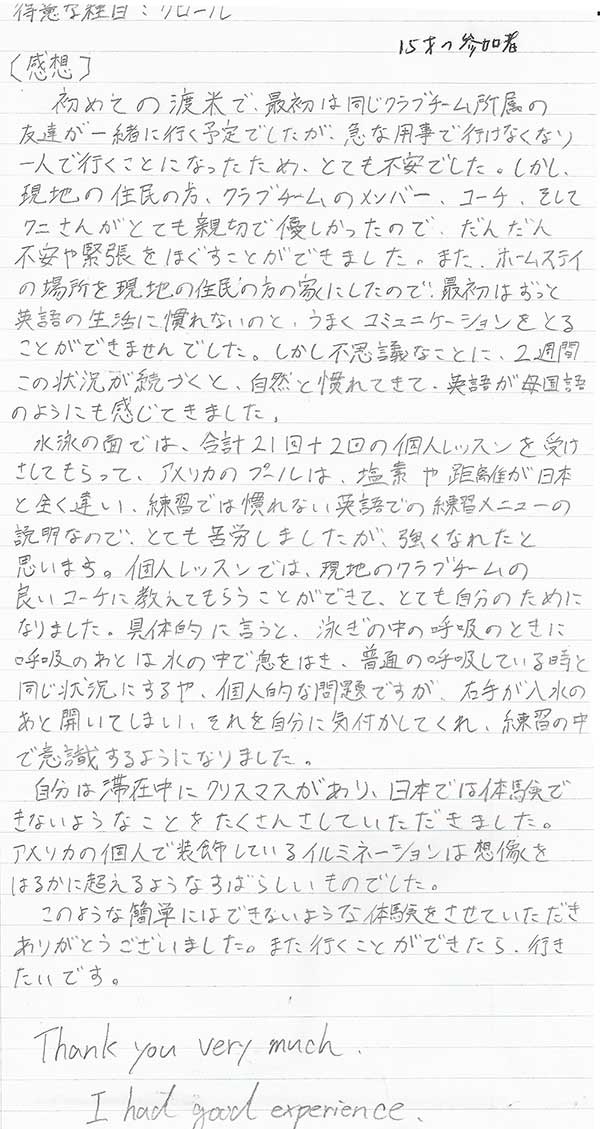 得意な種目：クロール
15才の参加者
〔感想〕
初めての渡米で、最初は同じクラブチーム所属の
友達が一緒に行く予定でしたが、急な用事で行けなくなり
一人で行くことになったため、とても不安でした。しかし、
現地の住民の方、クラブチームのメンバー、コーチ、そして
クニさんがとても親切で優しかったので、だんだん
不安や緊張をほぐすことができました。また、ホームステイ
の場所を現地の住民の方の家にしたので、最初はずっと
英語の生活に慣れないのと、うまくコミュニケーションをとる
ことができませんでした。しかし不思議なことに、2週間
この状況が続づくと、自然と慣れてきて、英語が母国語
のようにも感じてきました。
水泳の面では、合計21回+2回の個人レッスンを受け
さしてもらって、アメリカのプールは、塩素や距離が日本
と全く違い、練習では慣れない英語での練習メニューの
説明なので、とても苦労しましたが、強くなれたと
思います。個人レッスンでは、現地のクラブチームの
良いコーチに教えてもらうことができて、とても自分のために
なりました。具体的に言うと、泳ぎの中の呼吸のときに
呼吸のあとは水の中で息をはき、普通の呼吸している時と
同じ状況にするや、個人的な問題ですが、右手が入水の
あと開いてしまい、それを自分に気付かしてくれ、練習の中
で意識するようになりました。
自分は滞在中にクリスマスがあり、日本では体験で
きないようなことをたくさんさしていただきました。
アメリカの個人で装飾しているイルミネーションは想像を
はるかに超えるようなすばらしいものでした。
このような簡単にはできないような体験をさせていただき
ありがとうございました。また行くことができたら、行き
たいです。
Thank you very much.
I had good experience.